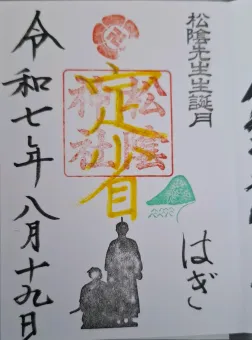 松陰先生生誕月
はぎ
定省
松陰
神社
令和七年八月十九日